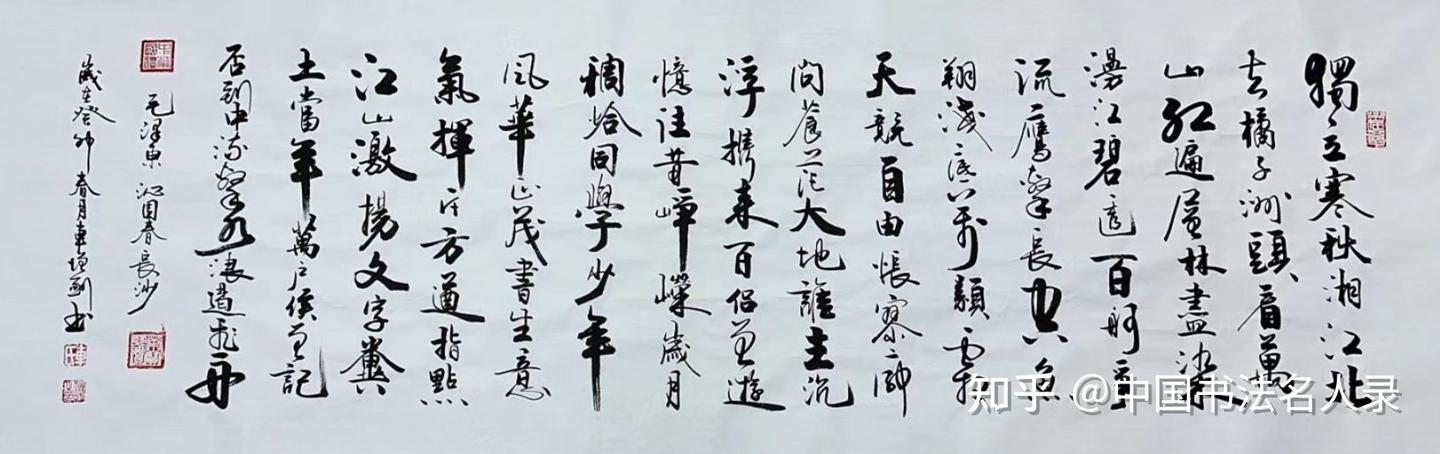 獨立寒秋湘江北
去橘子洲頭看萬
山紅遍層林盡染
漫江碧透百舸爭
流鷹擊長空魚
翔淺底万類霜
天競自由悵寥廓
問蒼茫大地誰主沉
浮攜來百侶曾遊
憶往昔崢嶸歲月
稠恰同學少年
風華正茂書生意
氣揮斥方遒指點
江山激揚文字糞
土當年萬户侯曾記
否到中流擊水浪遏飛舟
毛澤東沁園春長沙
歲在癸卯春月車增剛书
知乎 @中国书法名人录